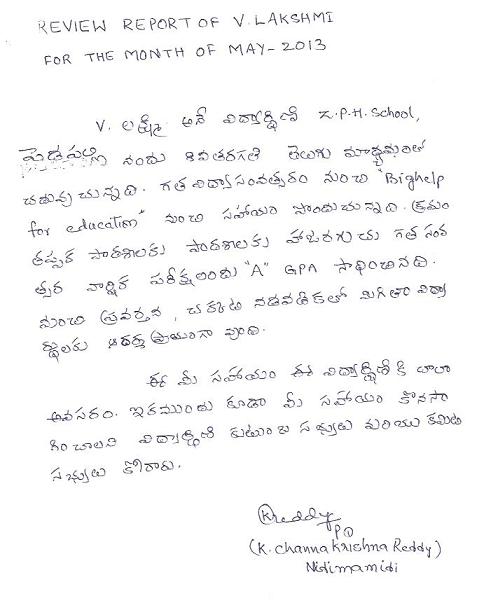 REVIEW REPORT OF V. LAKSHMI
FOR THE MONTH OF MAY-2013
V. లక్ష్మి అనే విద్యార్థిణి Z.P.H. School,
పెడపల్లి నందు 8వ తరగతి తెలుగు మాధ్యమంలో
చదువుచున్నది. గత విద్యాసంవత్సరం నుంచి "Bighelp
for education" నుంచి సహాయం పొందుచున్నది. క్రమం
తప్పక పాఠశాలకు హాజరగుచు గత సంవ
త్సర వార్షిక పరీక్షలందు "A" GPA సాధించినది.
మంచి ప్రవర్తన, చక్కటి నడవడికలో మిగితా విద్యా
ర్థులకు ఆదర్శప్రాయంగా వుంది.
ఈ మీ సహాయం ఈ విద్యార్థిణికి చాలా
అవసరం. ఇకముందు కూడా మీ సహాయం కొనసా
గించాలని విద్యార్థిణి కుటుంబ సభ్యులు మరియు కమిటి
సభ్యులు కోరారు.
KReddy
(K. Channa Krishna Reddy)
Nidimamidi